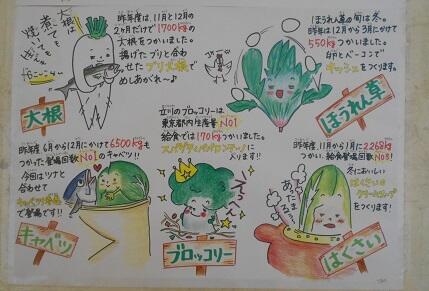 大根は
煮ても
焼いても
昨年度は、11月と12月の
2ヶ月だけで1700kgもの
大根をつかいました。
揚げたブリと合わ
せたブリ大根で
めしあがれ〜♪
大根
ほうれん草の旬は冬。
昨年度は12月から3月にかけて
550kgつかいました。
卵とベーコンで
キッシュをつくります。
ほうれん草
昨年度6月から12月にかけて6500kgも
つかった登場回数
No1のキャベツ!!
今回はツナと
合わせて
で登場です!!
キャベツ
立川のブロッコリーは
東京都内生産量No1
給食では170kgつかいました。
スパゲティペペロンチーノに
入ります!!
ブロッコリー
昨年度、11月と1月に2268kg
つかい、給食登場回数No3!
冬においしい
はくさいの
クリームスープを
つくります!
はくさい